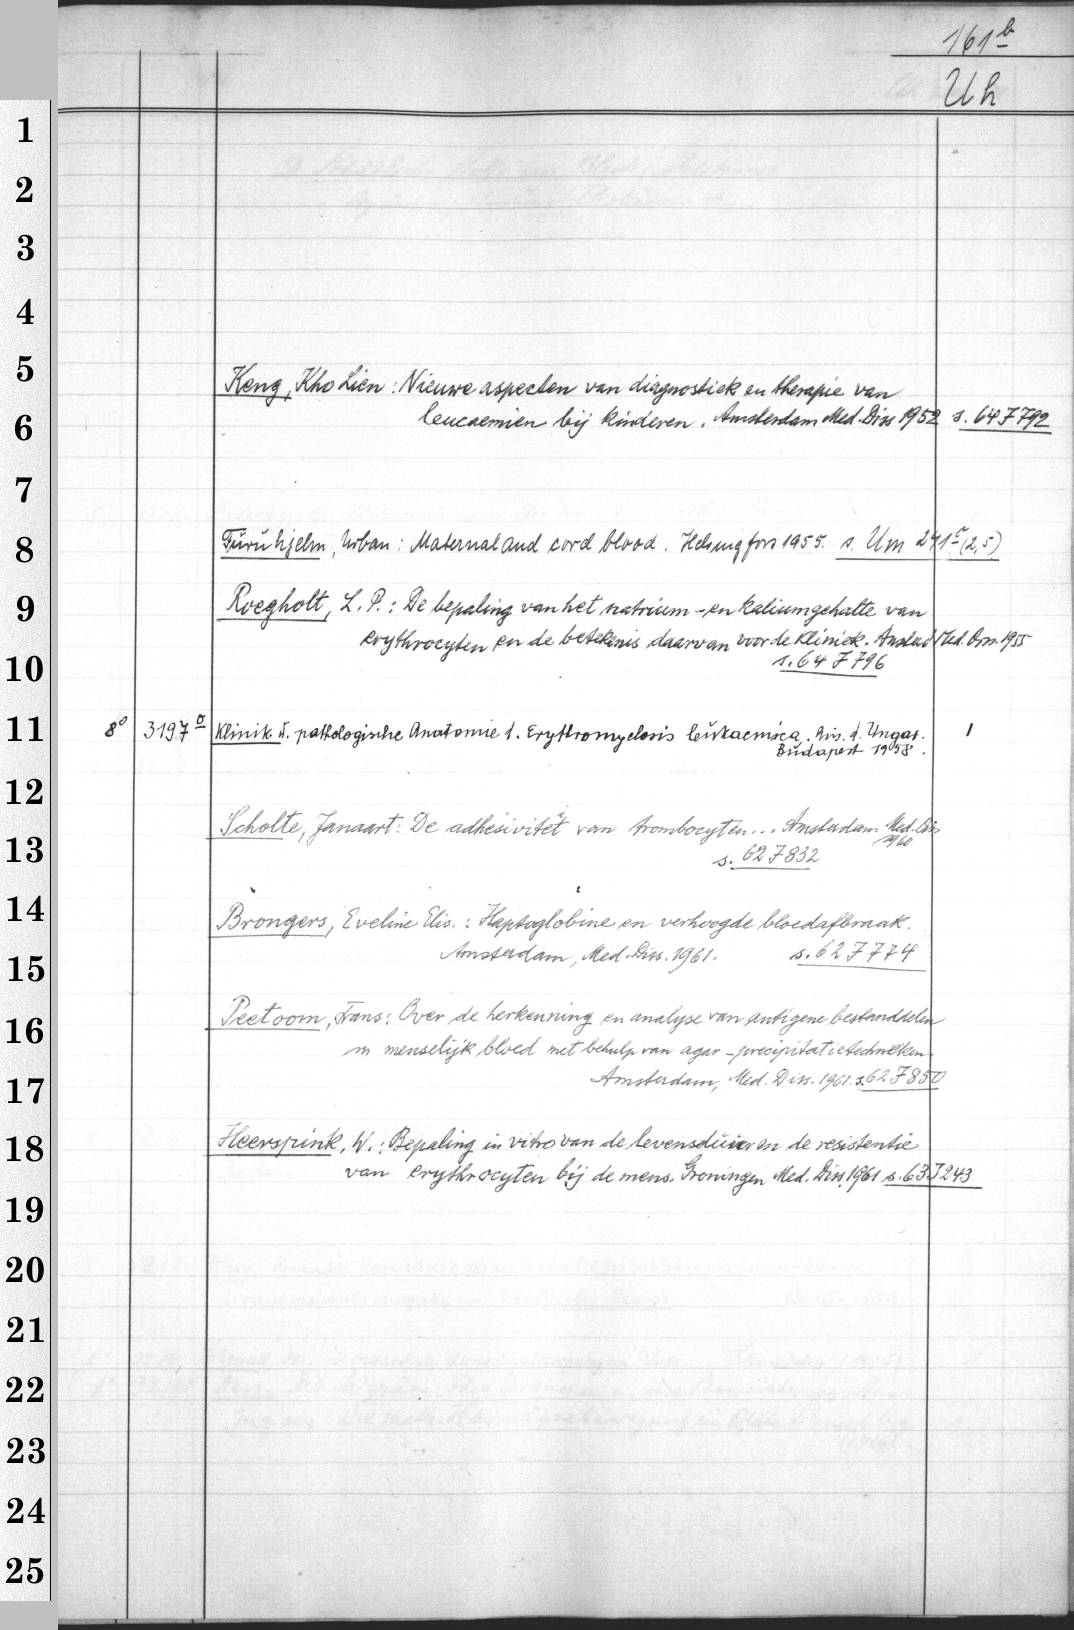 161 b
Uh
1
2
3
4
5
Keng, Kho Lien : Nieuwe aspecten van diagnostiek en therapie van
6
leucaemien bij kinderen. Amsterdam Med. Diss 1952 s. 64 J 792
7
8
Furuhjelm, Urban : Maternal and cord blood. Helsingfors 1955. s. Um 241 (2,5)
9
Roegholt, L. P. : De bepaling van het natrium - en kaliumgehalte van
erythrocyten en de betekenis daarvan voor de kliniek. Amsterd Med. Diss. 1955
10
s. 64 J 796
11
8° 3197 Klinik u. pathologische Anatomie d. Erythromyelosis leukaemica. d. Ungar. 1
Budapest 1958.
12
Scholte, Janaart: De adhesiviteit van trombocyten... Amsterdam Med. Diss
1960
13
s. 62 J 832
14
Brongers, Eveline Elis. : Haptoglobine en verhoogde bloedafbraak.
15
Amsterdam, Med. Diss. 1961. s. 62 J 774
16
Peetoom, Frans: Over de herkenning en analyse van antigene bestanddelen
in menselijk bloed met behulp van agar - precipitatietechnieken.
17
Amsterdam, Med. Diss. 1961. s. 62 J 850
18
Heerspink, W. : Bepaling in vitro van de levensduur en de resistentie
van erythrocyten bij de mens. Groningen Med. Diss. 1961 s. 63 J 243
19
20
21
22
23
24
25